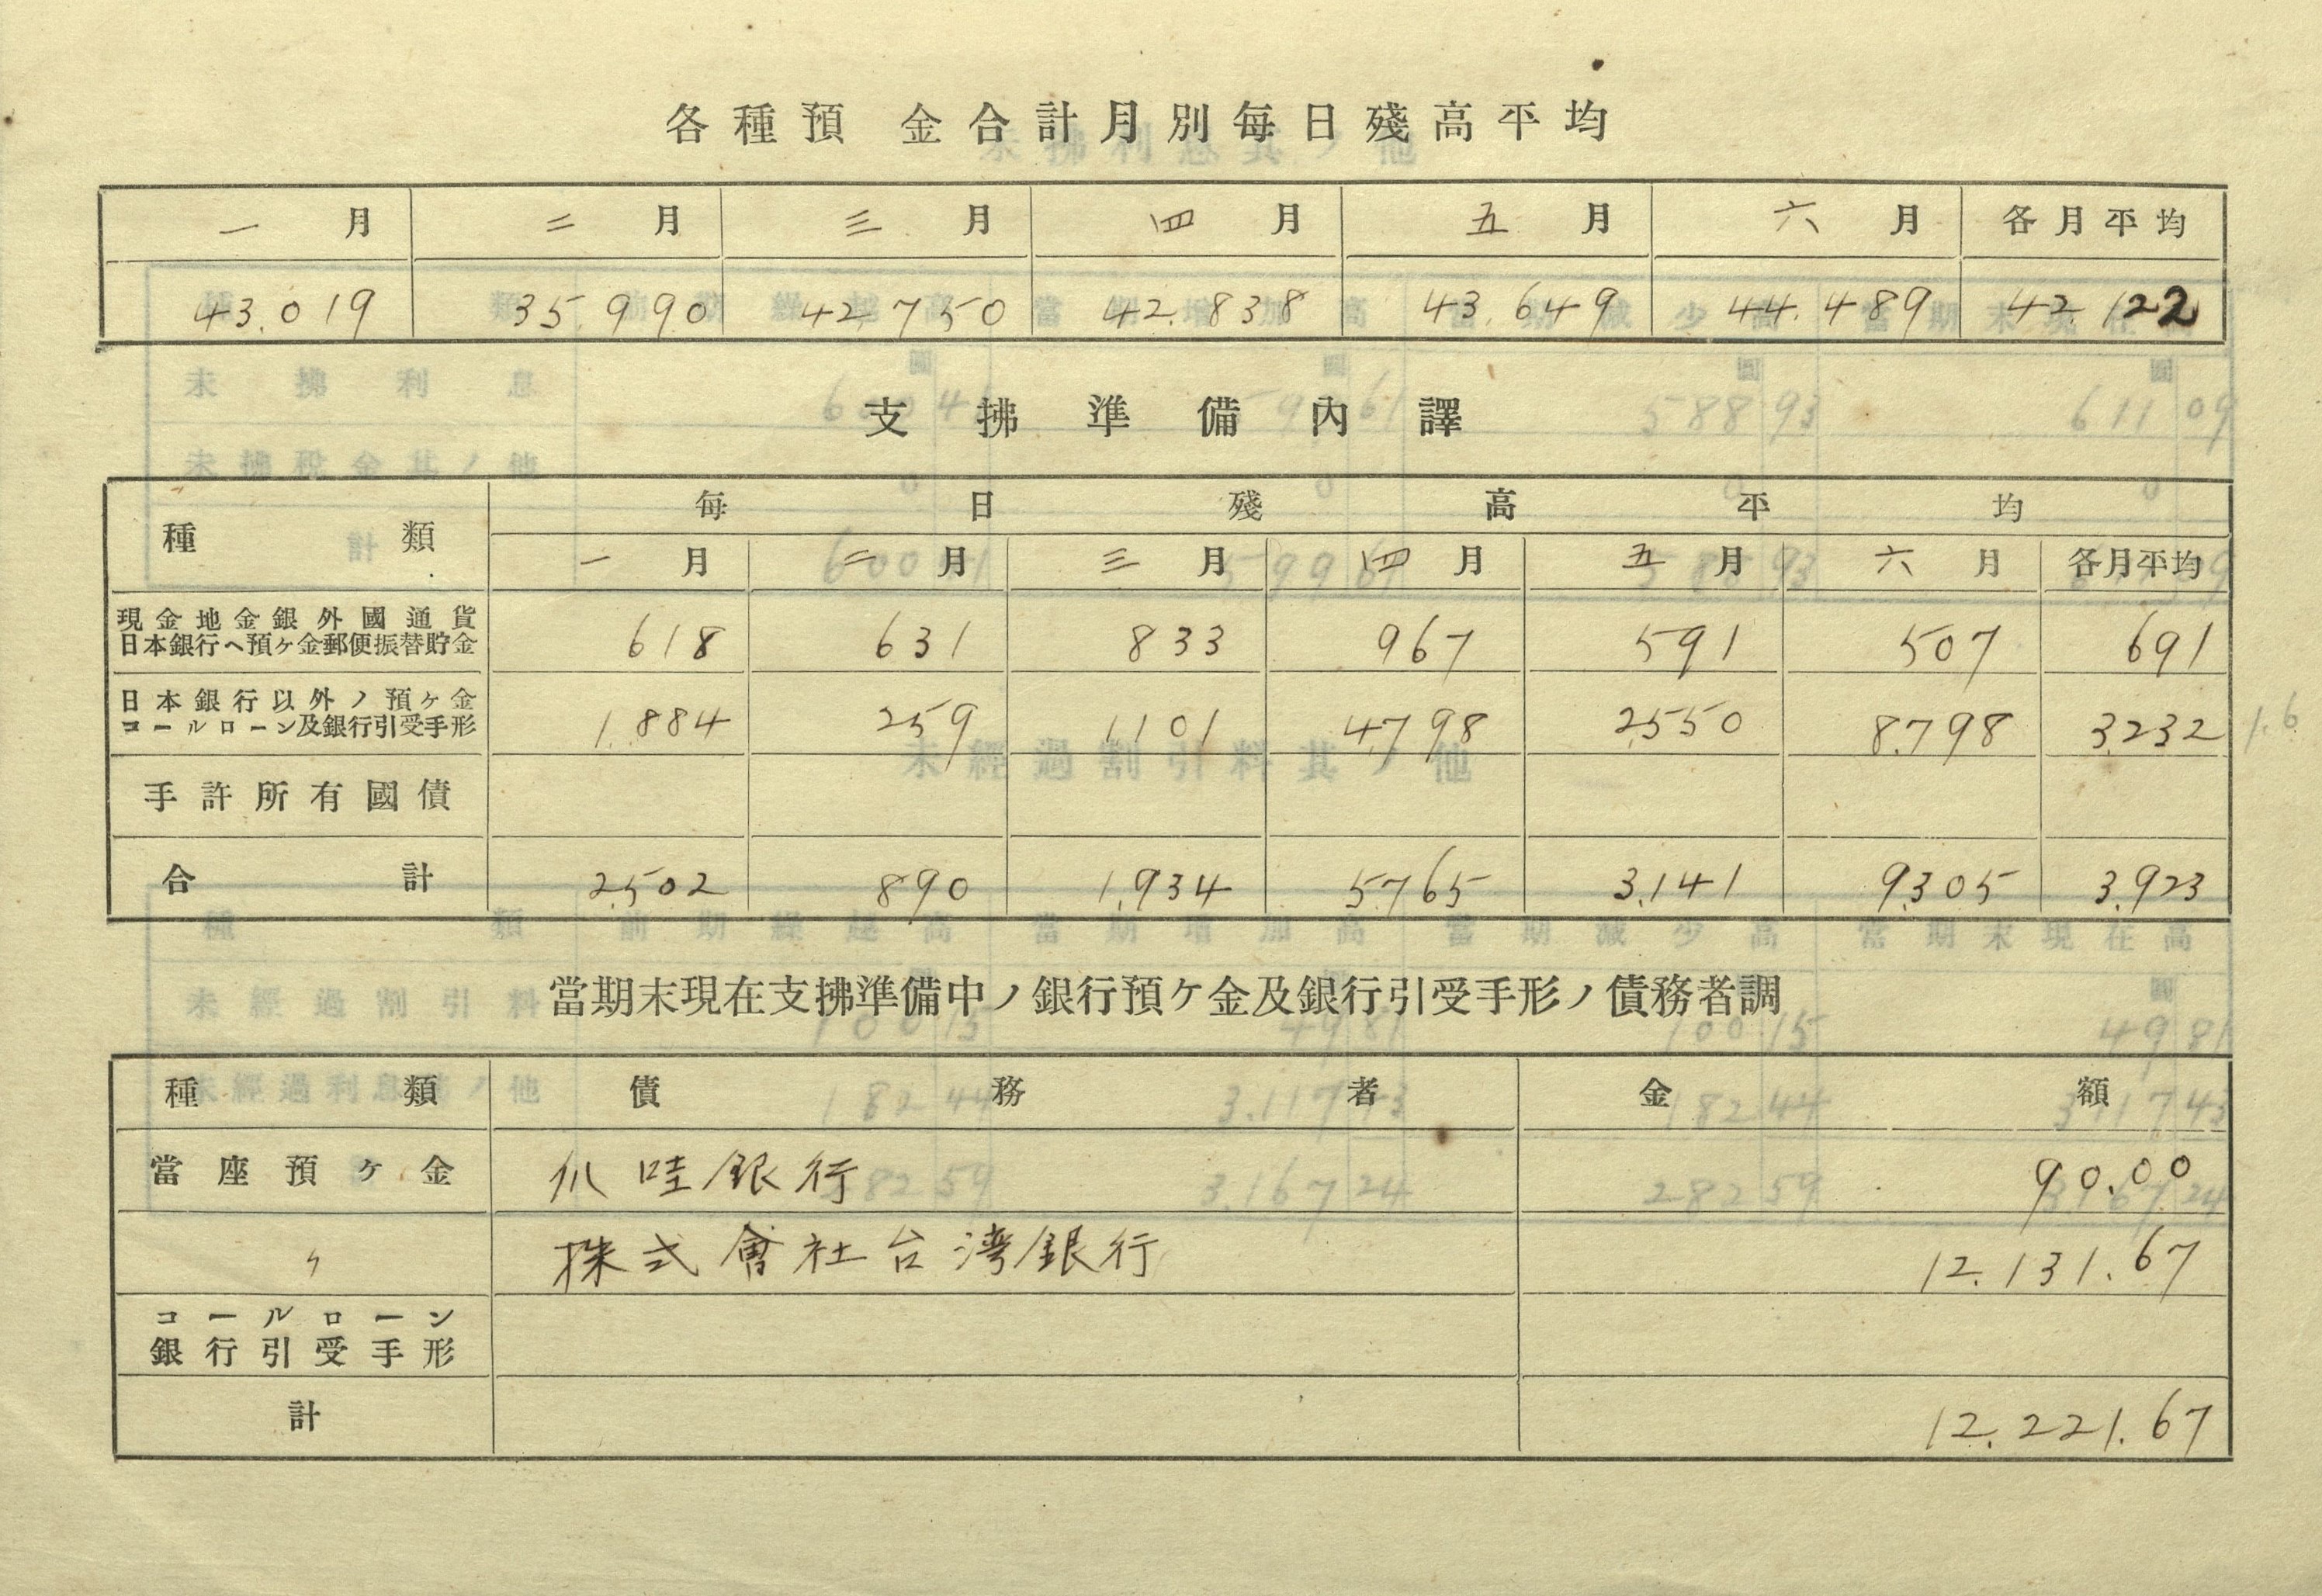 各種預金合計月別每日殘高平均
一月 二月 三月 四月 五月 六月 各月平均
43.019 35.990 42.750 42.838 43.649 44.489 42.122
支拂準備內譯
種類 每日殘高平均
一月 二月 三月 四月 五月 六月 各月平均
現金地金銀外國通貨
日本銀行ヘ預ヶ金郵便振替貯金 618 631 833 967 591 507 691
日本銀行以外ノ預ヶ金
コールローン及銀行引受手形 1.884 259 1101 4.798 2.550 8.798 3.232 1.6
手許所有國債
合計 2.502 890 1.934 5.765 3.141 9.305 3.923
當期末現在支拂準備中ノ銀行預ケ金及銀行引受手形ノ債務者調
種類 債務者 金額
當座預ヶ金 爪哇銀行 90.00
〃 株式會社台湾銀行 12.131.67
コールローン
銀行引受手形
計 12.221.67